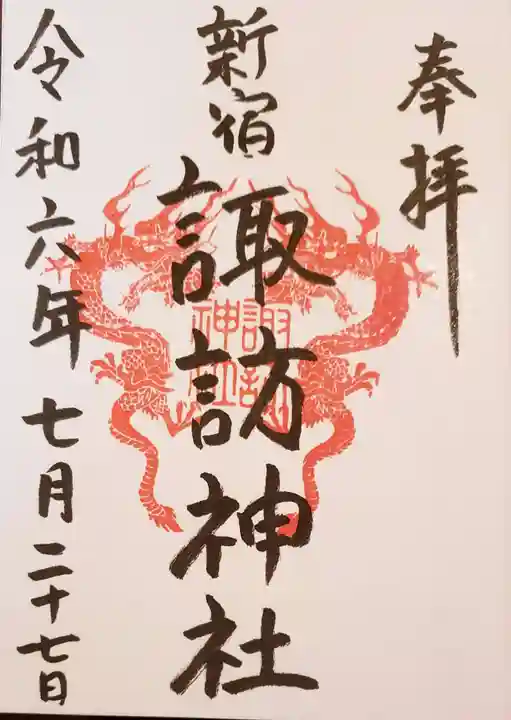 奉拝
新宿
諏訪神社
諏訪
神社
令和六年七月二十七日